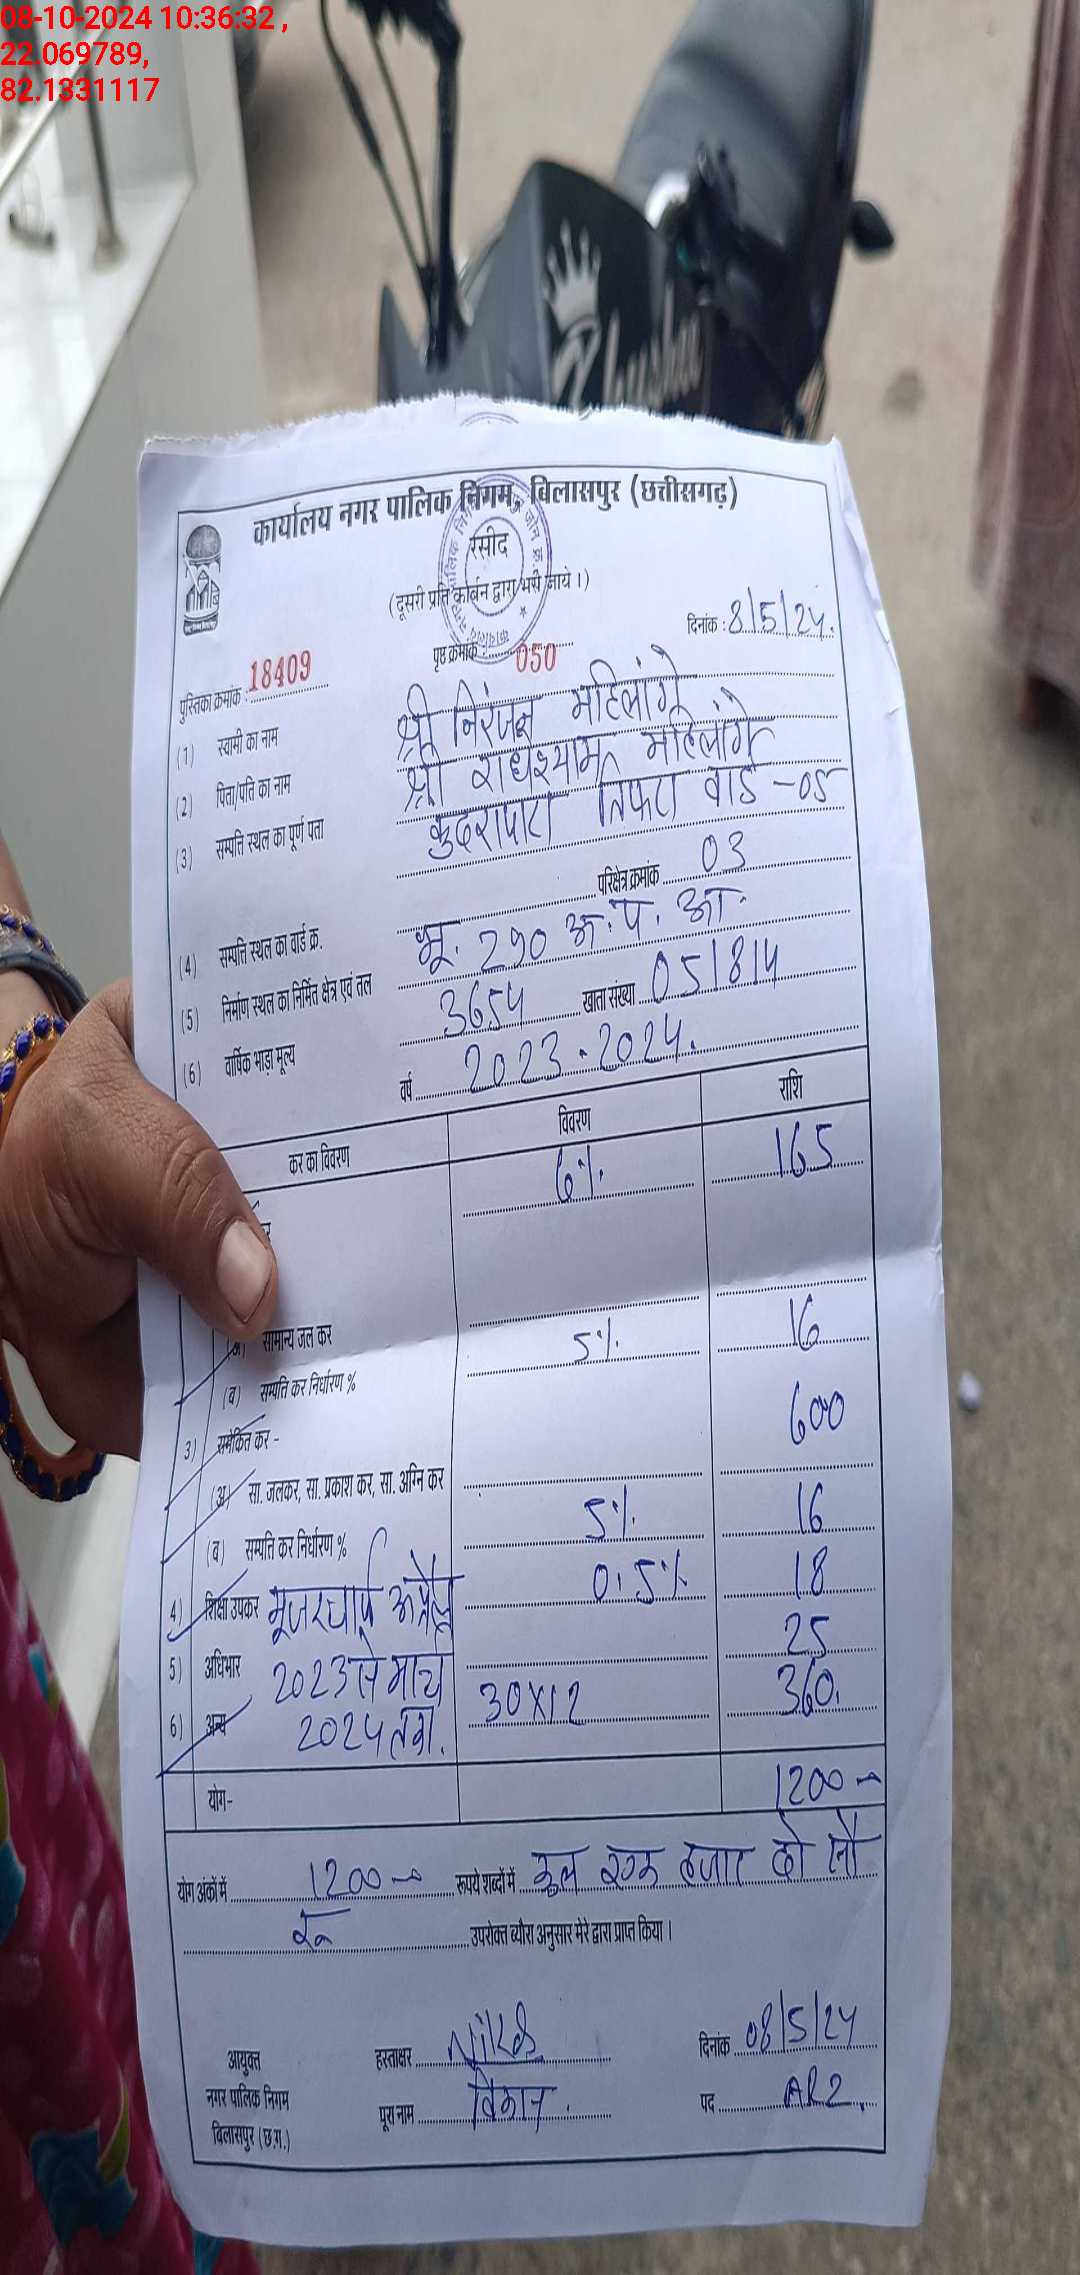 08-10-2024 10:36:32 ,
22.069789,
82.1331117
कार्यालय नगर पालिक निगम, बिलासपुर (छत्तीसगढ़)
रसीद
(दूसरी प्रति कोर्बन द्वारा भरी जाये।)
दिनांक : 8/5/24.
पुस्तिका क्रमांक : 18409 पृष्ठ क्रमांक : 050
(1) स्वामी का नाम श्री निरंजन महिलांगे
(2) पिता/पति का नाम श्री राधेश्याम महिलांगे
(3) सम्पत्ति स्थल का पूर्ण पता कुदरापारा तिफरा वार्ड -05
(4) सम्पत्ति स्थल का वार्ड क्र. परिक्षेत्र क्रमांक 03
(5) निर्माण स्थल का निर्मित क्षेत्र एवं तल भू. 290 अ. प. आ.
(6) वार्षिक भाड़ा मूल्य 3654 खाता संख्या 051814
वर्ष 2023-2024.
कर का विवरण विवरण राशि
6%. 165
(अ) सामान्य जल कर
(ब) सम्पत्ति कर निर्धारण % 5%. 16
3) समेकित कर -
(अ) सा. जलकर, सा. प्रकाश कर, सा. अग्नि कर 600
(ब) सम्पत्ति कर निर्धारण % 5%. 16
4) शिक्षा उपकर यूजरचार्ज अप्रैल 0.5% 18
5) अधिभार 2023 से मार्च 25
6) अन्य 2024 तक. 30X12 360.
योग- 1200
योग अंकों में 1200 रूपये शब्दों में कुल एक हजार दो सौ
रू उपरोक्त ब्यौरा अनुसार मेरे द्वारा प्राप्त किया।
आयुक्त हस्ताक्षर दिनांक 08/5/24
नगर पालिक निगम पूरा नाम विकास. पद AR2.
बिलासपुर (छ.ग.)